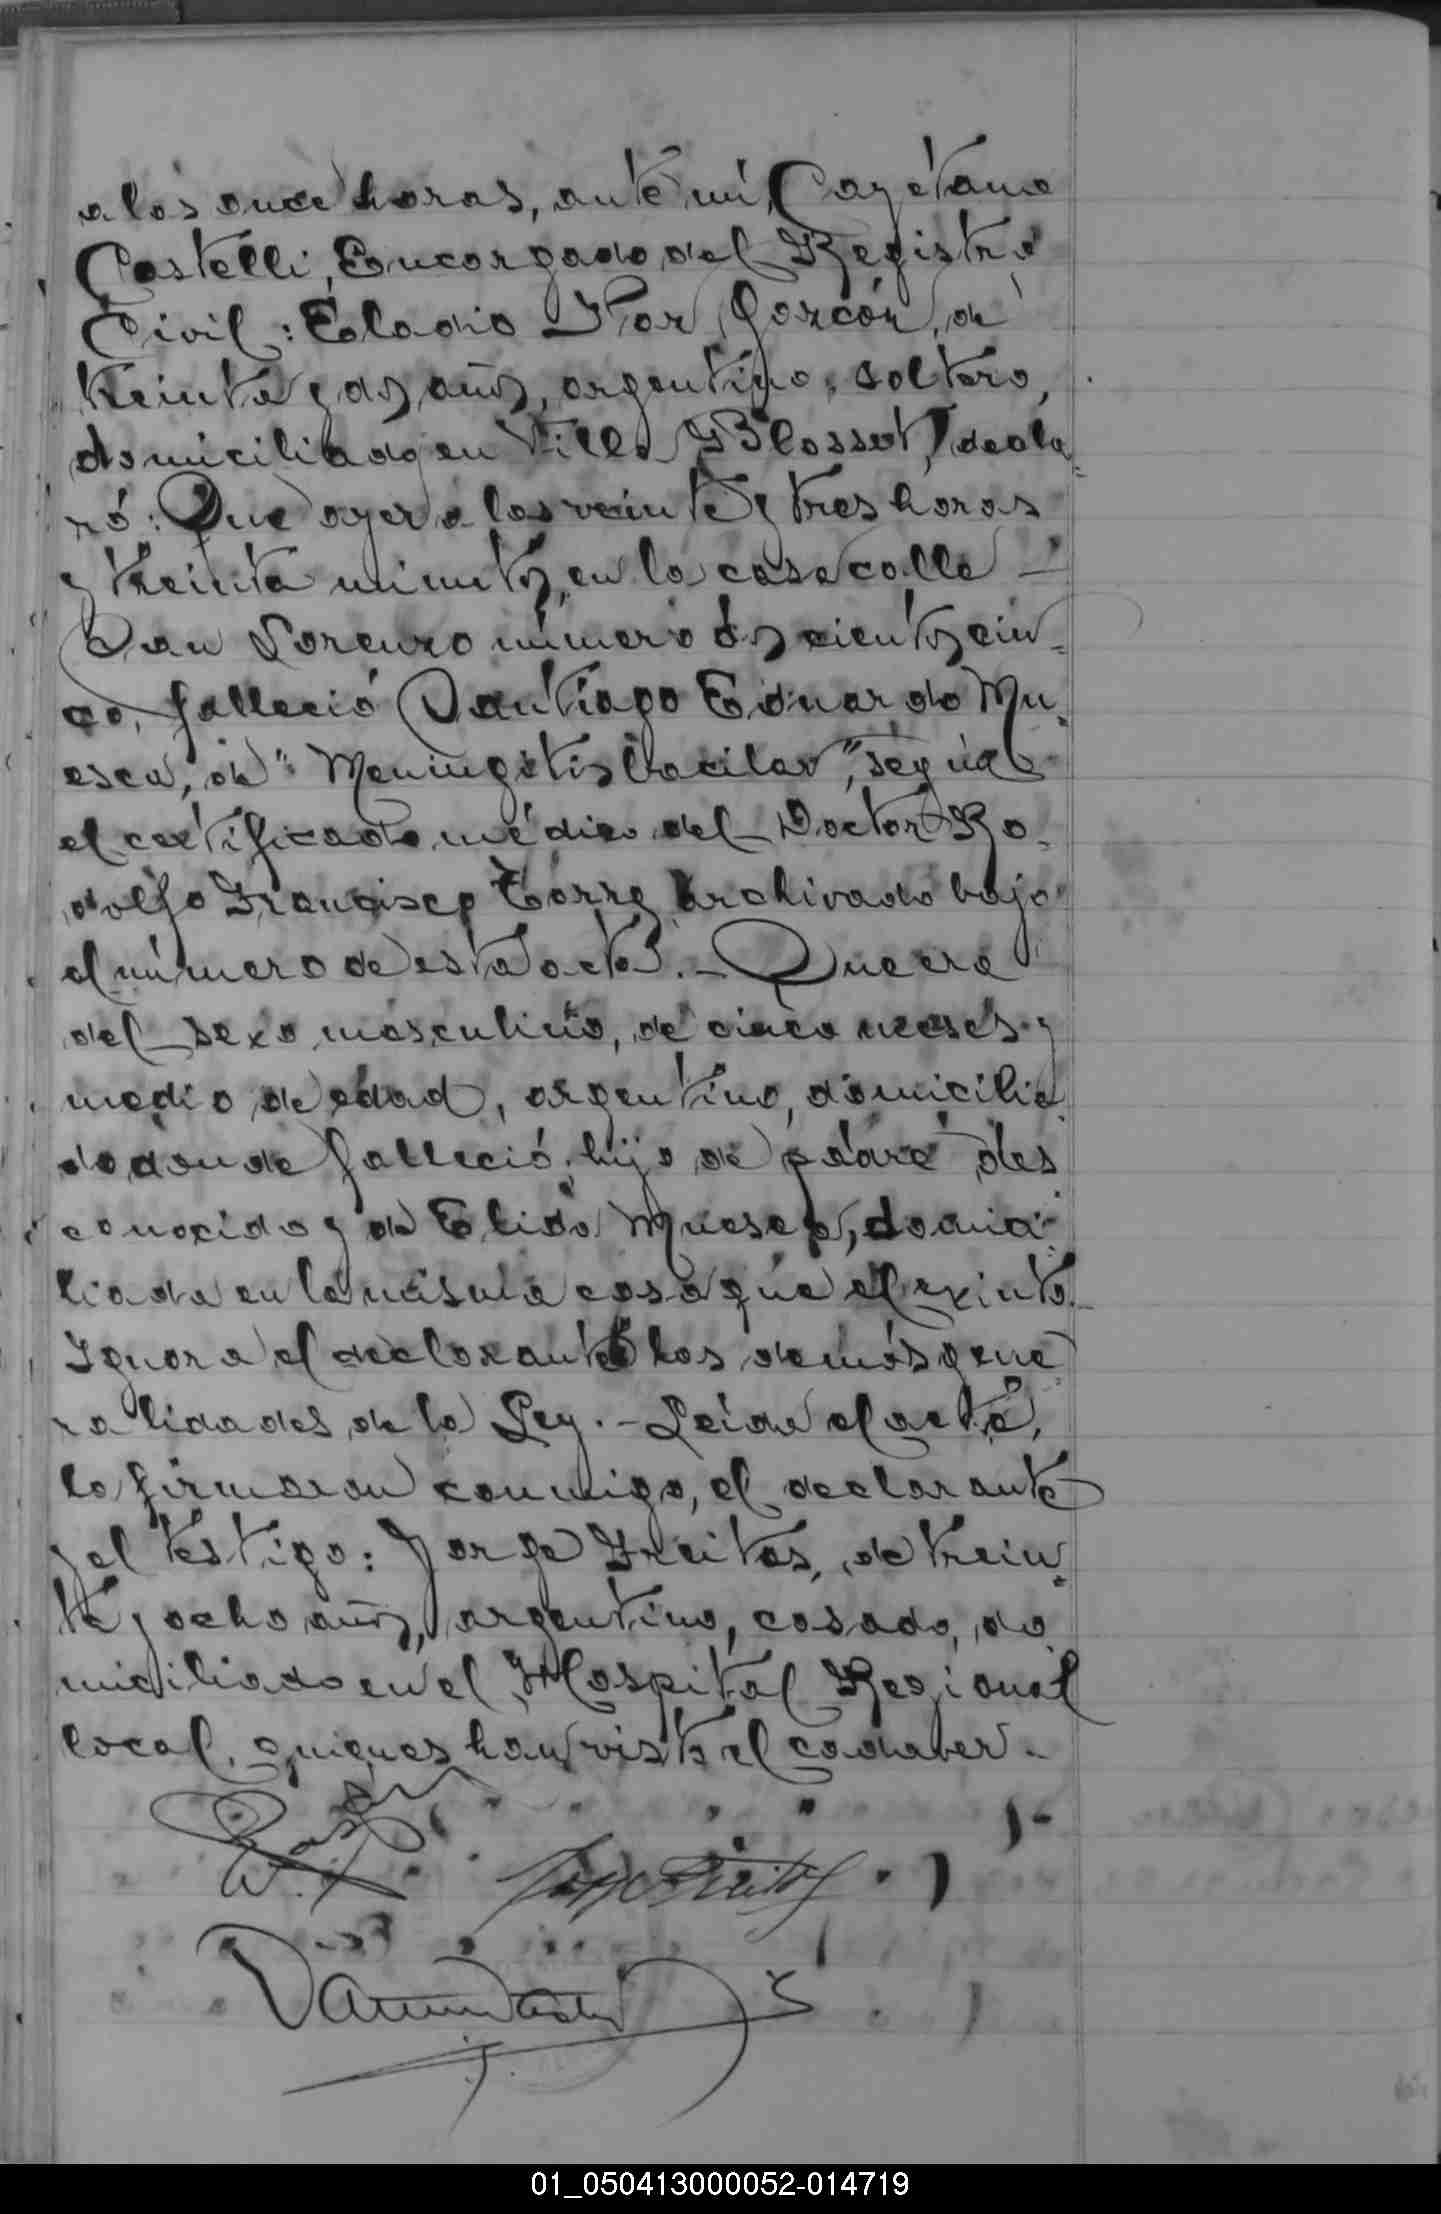 a las once horas, ante mí, Cayetano
Castelli, Encargado del Registro
Civil: Eladio Flor Garzón, de
treinta y dos años, argentino, soltero,
domiciliado en Villa Blosset, decla=
ró: Que ayer a las veinte y tres horas
y treinta minutos, en la casa calle —
San Lorenzo número doscientos cin=
co, falleció Santiago Eduardo Mu=
esca, de "Meningitis bacilar", según
el certificado médico del Doctor Ro=
dolfo Francisco Torre archivado bajo
el número de esta acta. — Que era
del sexo masculino, de cinco meses y
medio de edad, argentino, domicilia
do donde falleció, hijo de padre des
conocido y de Elida Muesca, domici=
liada en la misma casa que el extinto.
Ignora el declarante las demás gene
ralidades de la Ley. — Leída el acta,
la firmaron conmigo, el declarante
y el testigo: Jorge Freitas, de trein=
ta y ocho años, argentino, casado, do
miciliado en el Hospital Regional
local, quienes han visto el cadaver. —
Jorge Freitas
01_050413000052-014719